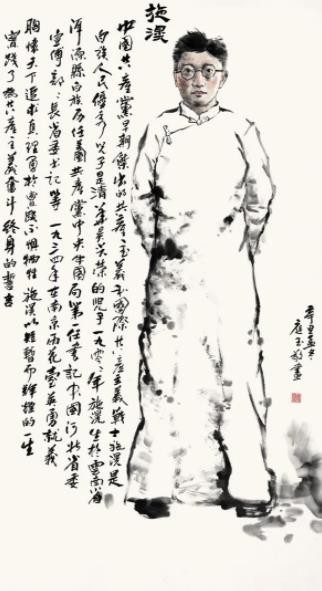 施滉
中国共产党早期杰出的共产主义和国际共产主义战士施滉是
白族人民优秀儿子是清华最光荣的儿子一九〇〇年施滉生于云南省
洱源县白族历任美国共产党中央中国局第一任书记中国河北省委
宣传部部长省委书记等一九三四年在南京雨花台英勇就义
胸怀天下追求真理勇于实践不惧牺牲施滉以短暂而辉煌的一生
实践了为共产主义奋斗终身的誓言
辛丑孟冬